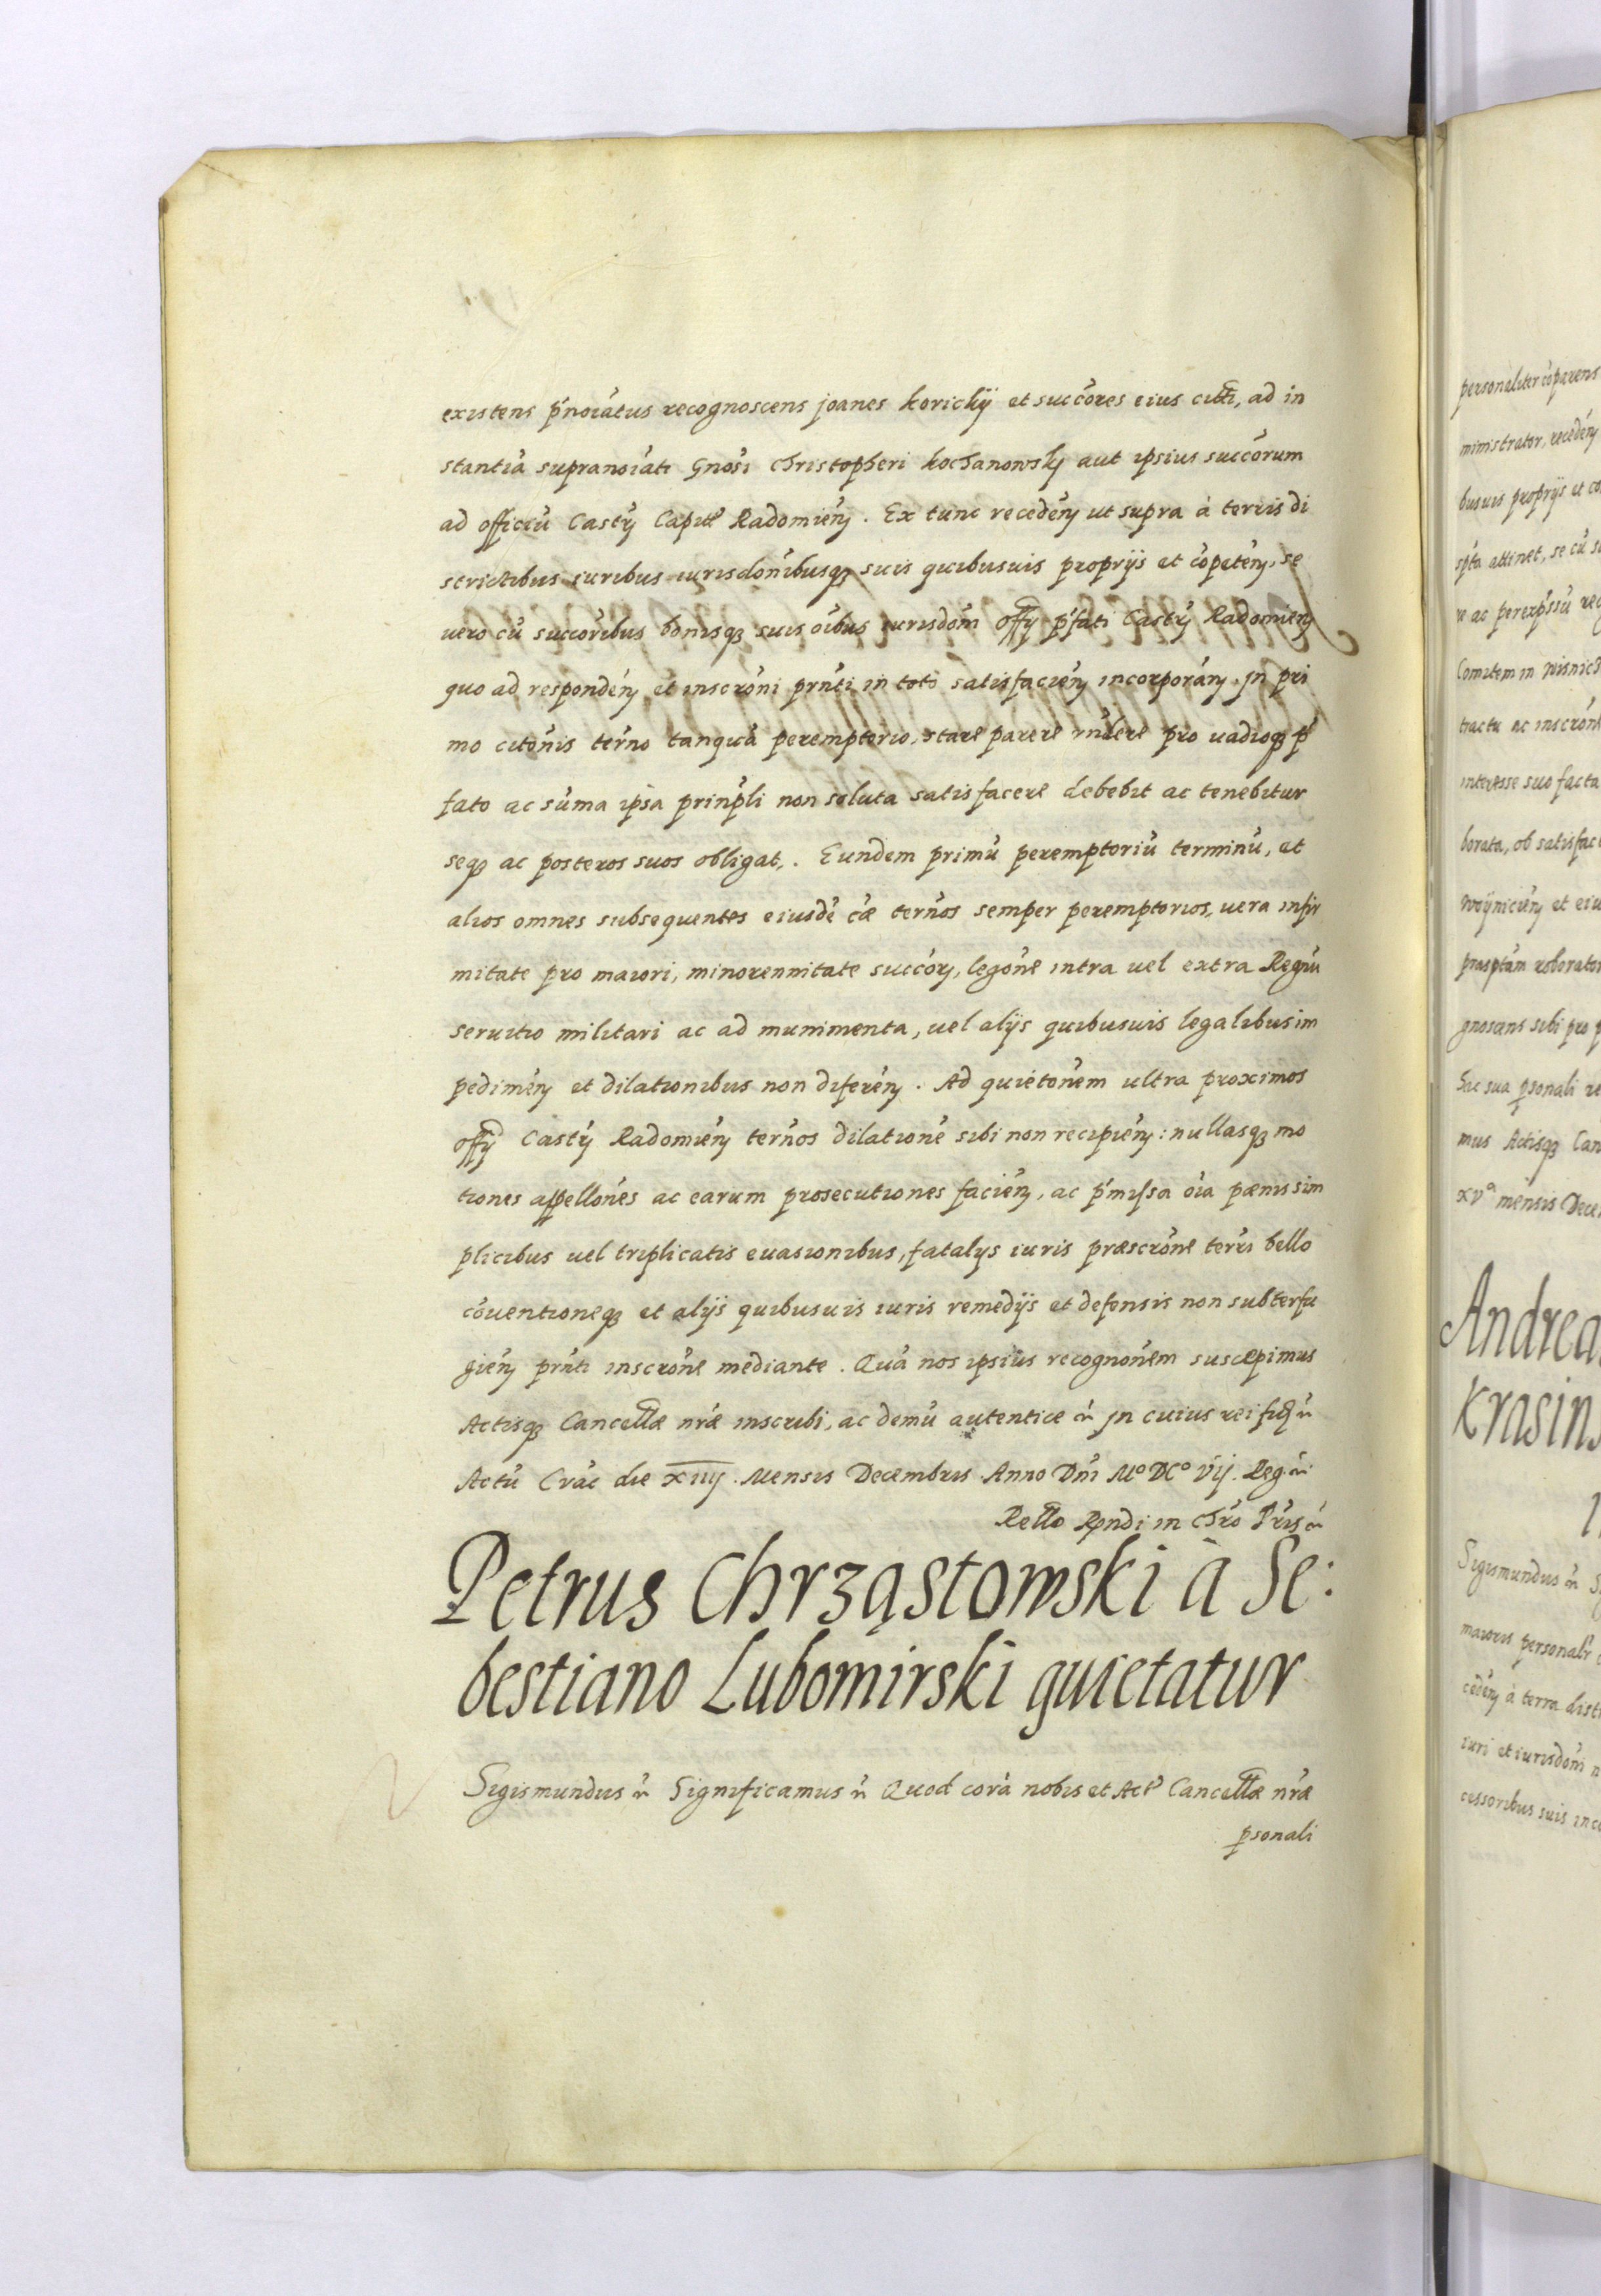 existens p'noiatus recognoscens joanes korickÿ et succores eius citti, ad in
stantiã supranoiati Gnosi christopheri kochanowsky aut ipsius succorum
ad officiũ Castri Capitl Radomień. Ex tunc recedeń ut supra à terris di
strictibus iuribus iurisdonibusq3 suis quibusuis proprijs et cõpeteń, se
uero cũ succoribus bonisq3 suis oibus iurisdom offy p'fati Castri Radomień
quo ad respondeń et inscroni prnti in toto satisfacień incorporań. jn pri
mo citonis terno tanquã peremptorio, stare parere inδere pro uadioq3 p'
fato ac sũma ipsa prinpli non soluta satisfacere debebit ac tenebitur
seq3 ac posteros suos obligat. Eundem primũ peremptoriũ terminũ, et
alios omnes subsequentes eiusdẽ cæ ternos semper peremptorios, uera infir
mitate pro maiori, minorennitate succorẏ, legone intra uel extra Regnũ
seruitio militari ac ad munimenta, uel alijs quibusuis legalibus im
pedimeń et dilationibus non difereń. Ad quietonem ultra proximos
offy Castri Radomień ternos dilationẽ sibi non recipień: nullasq3 mo
tiones appellones ac earum prosecutiones facień, ac p'missa oia pænis sim
plicibus uel triplicatis euasionibus, fatalys iuris præscrone terri bello
cõuentioneq3 et alijs quibusuis iuris remedijs et defensis non subterfu
gień prnti inscrone mediante. Quã nos ipsius recognonem suscepimus
Actisq3 Cancellæ nræ inscribi, ac demũ autentice ẽ jn cuius rei fid ẽ
Actũ Crac die xiiij. Mensis Decembris Anno Dni Mo DCo Vij. Reg ẽ
Rello Rndi in chro Pris ẽ
Petrus Chrząstowski à Se:
bestiano Lubomirski quietatur
Sigismundus ẽ Significamus ẽ Quod corã nobis et Actl Cancellæ nræ
psonali
personaliter cõparens
ministrator, recedeń
busuis proprijs et co
spta attinet, se cũ su
re ac per exp'ssũ rec
Comitem in wisnicz
tractu ac inscroni
interesse suo facta
borata, ob satisfac
woynicień et eiu
præsptam roborator
gnoscens sibi pro p
hac sua psonali re
mus Actisq3 Can
xva mensis Dece
Andrea
Krasins
Sigismundus ẽ Sig
maioris personalr
cedeń à terra dist
iuri et iurisdoni
cessoribus suis inco